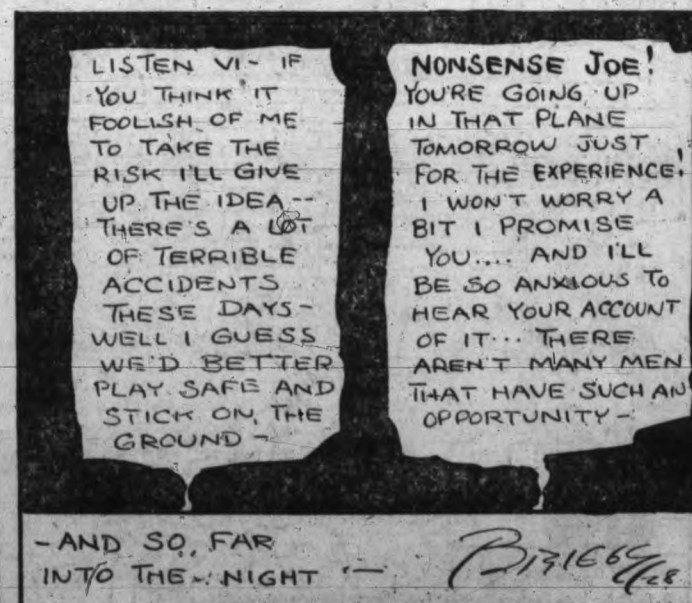 LISTEN VI - IF
YOU THINK IT
FOOLISH OF ME
TO TAKE THE
RISK I'LL GIVE
UP THE IDEA --
THERE'S A LOT
OF TERRIBLE
ACCIDENTS
THESE DAYS -
WELL I GUESS
WE'D BETTER
PLAY SAFE AND
STICK ON THE
GROUND -
NONSENSE JOE!
YOU'RE GOING UP
IN THAT PLANE
TOMORROW JUST
FOR THE EXPERIENCE!
I WON'T WORRY A
BIT I PROMISE
YOU.... AND I'LL
BE SO ANXIOUS TO
HEAR YOUR ACCOUNT
OF IT... THERE
AREN'T MANY MEN
THAT HAVE SUCH AN
OPPORTUNITY -
- AND SO, FAR
INTO THE NIGHT -
BRIGGS